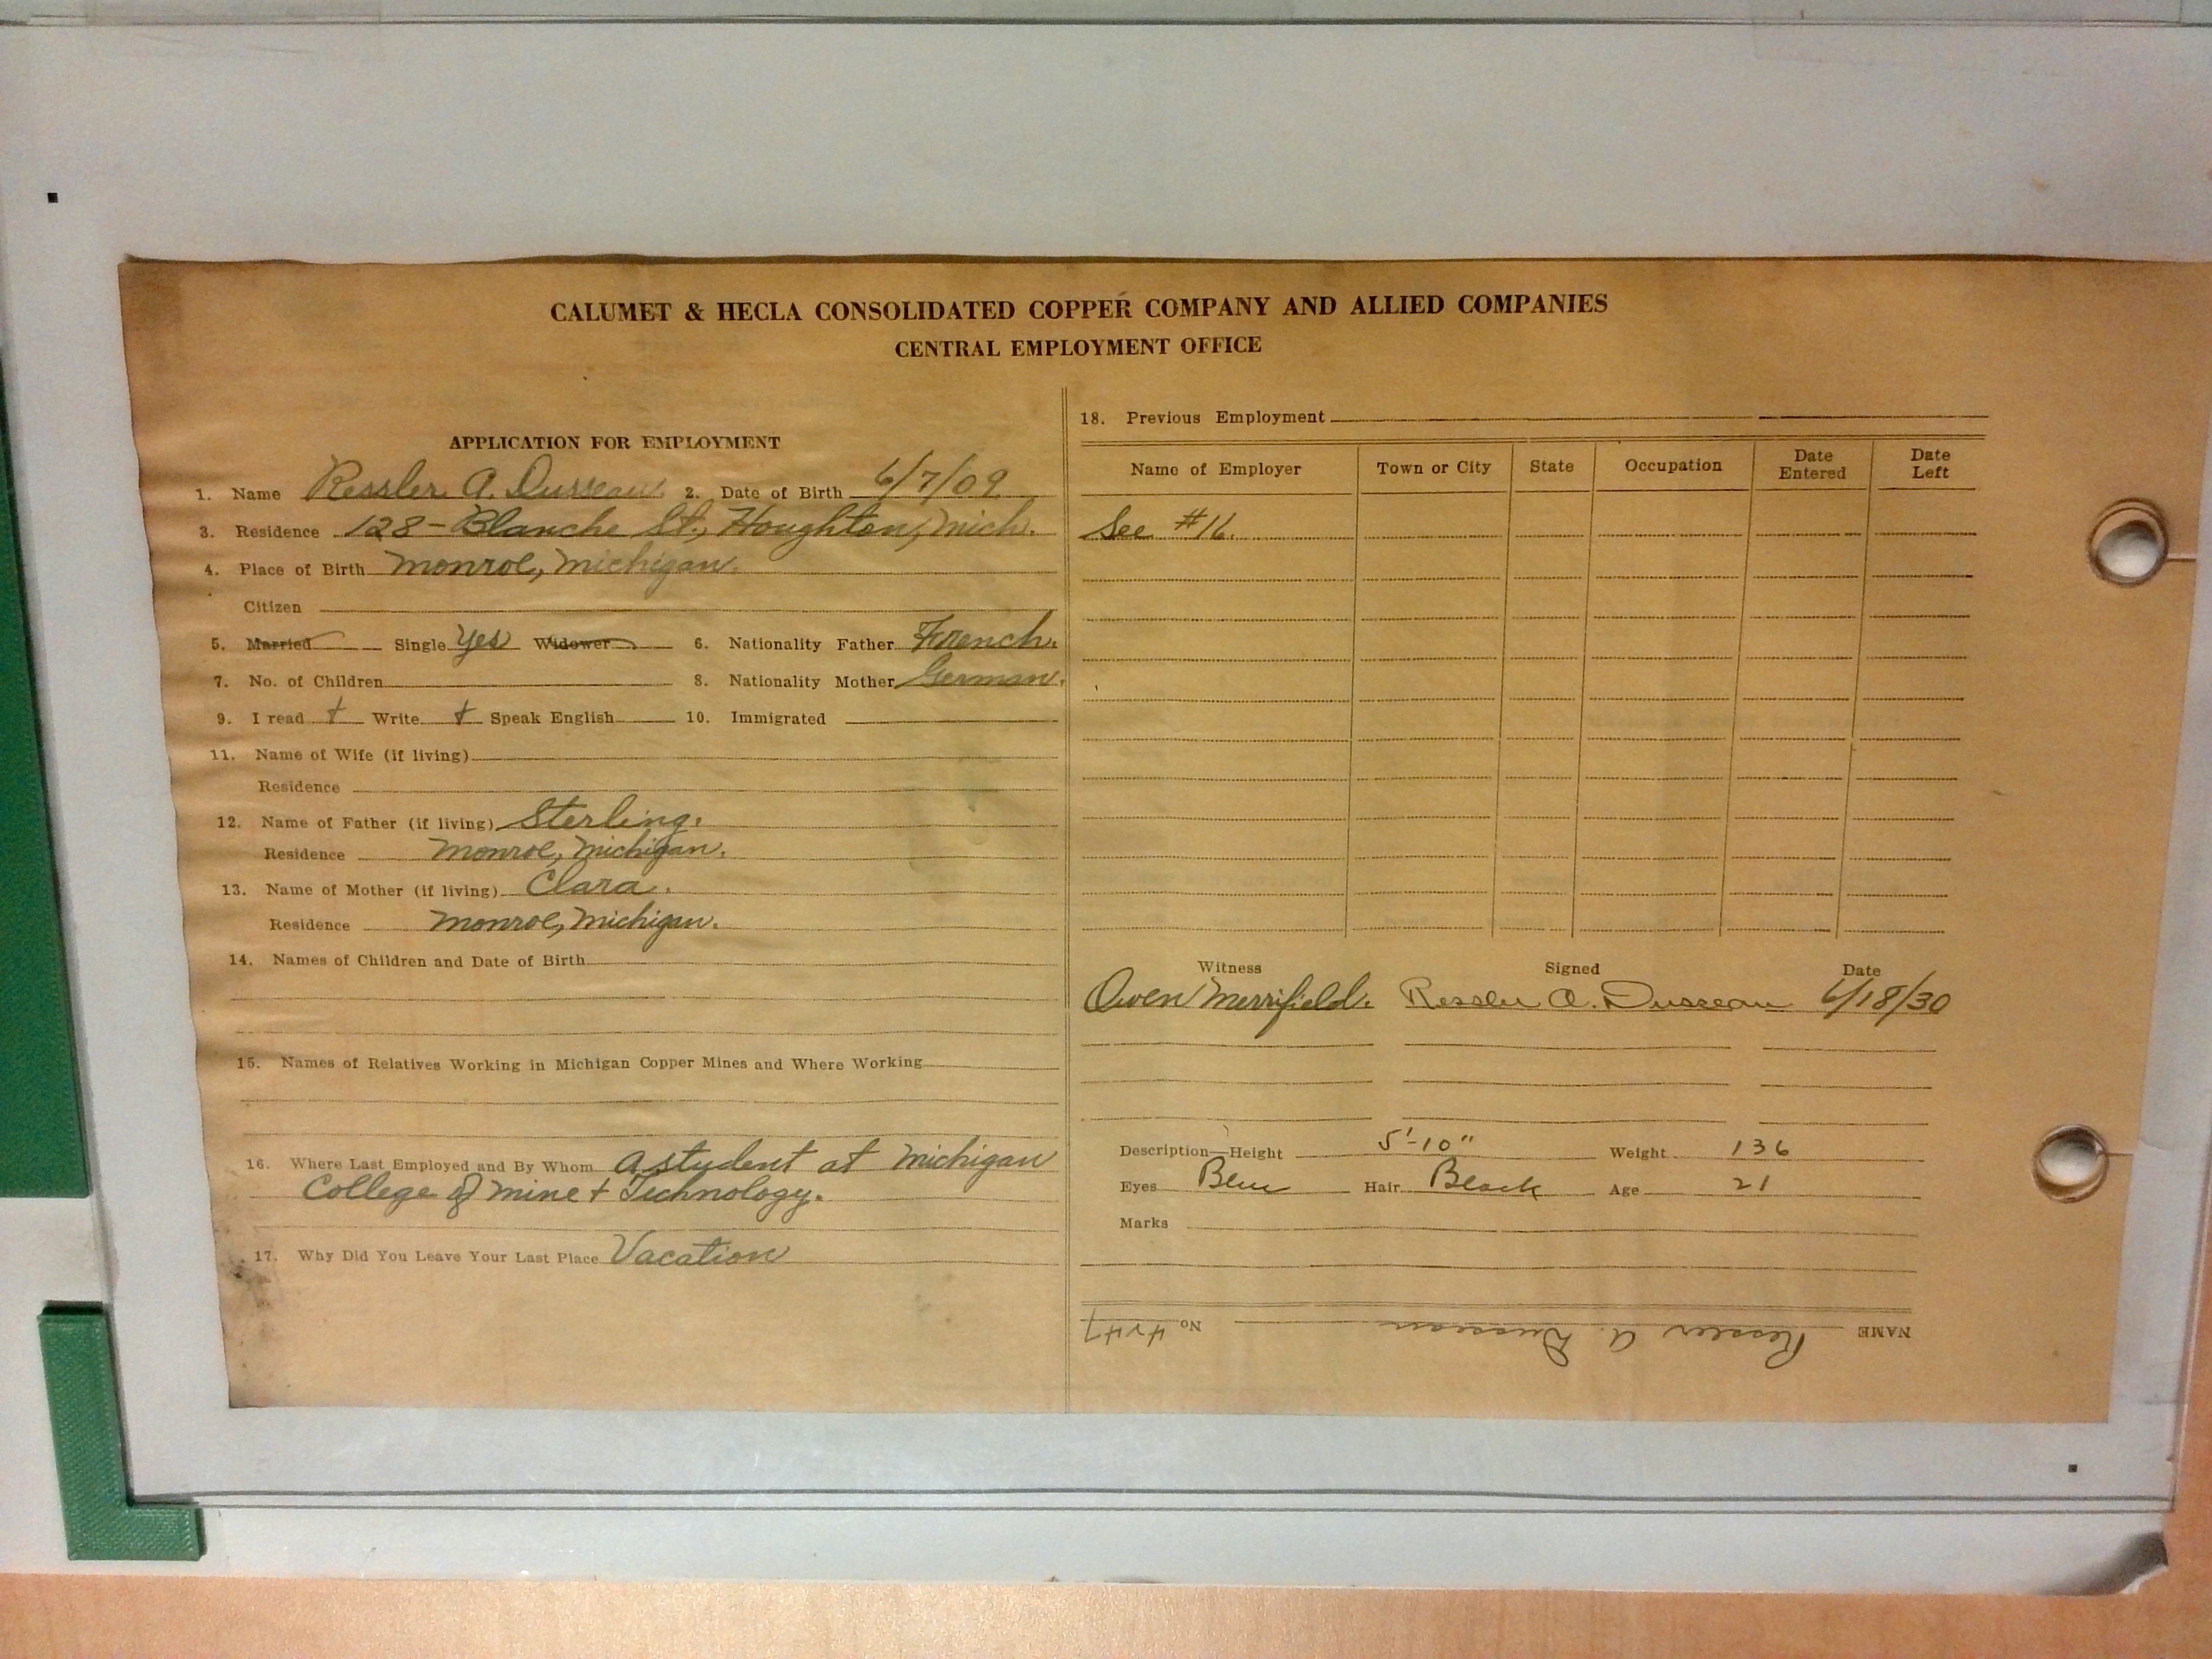 CALUMET & HECLA CONSOLIDATED COPPER COMPANY AND ALLIED COMPANIES
CENTRAL EMPLOYMENT OFFICE
APPLICATION FOR EMPLOYMENT
1. Name Ressler A. Dusseau 2. Date of Birth 6/7/09
3. Residence 128 - Blanche St., Houghton, Mich.
4. Place of Birth Monroe, Michigan.
Citizen
5. Married Single Yes Widower 6. Nationality Father French.
7. No. of Children 8. Nationality Mother German.
9. I read + Write + Speak English 10. Immigrated
11. Name of Wife (if living)
Residence
12. Name of Father (if living) Sterling.
Residence Monroe, Michigan.
13. Name of Mother (if living) Clara.
Residence Monroe, Michigan.
14. Names of Children and Date of Birth
15. Names of Relatives Working in Michigan Copper Mines and Where Working
16. Where Last Employed and By Whom A student at Michigan
College of Mine + Technology.
17. Why Did You Leave Your Last Place Vacation
18. Previous Employment
Name of Employer Town or City State Occupation Date Entered Date Left
See #16.
Witness Signed Date
Owen Merrifield. Ressler A. Dusseau 6/18/30
Description—Height 5'-10" Weight 136
Eyes Blue Hair Black Age 21
Marks
NAME Ressler A. Dusseau No.